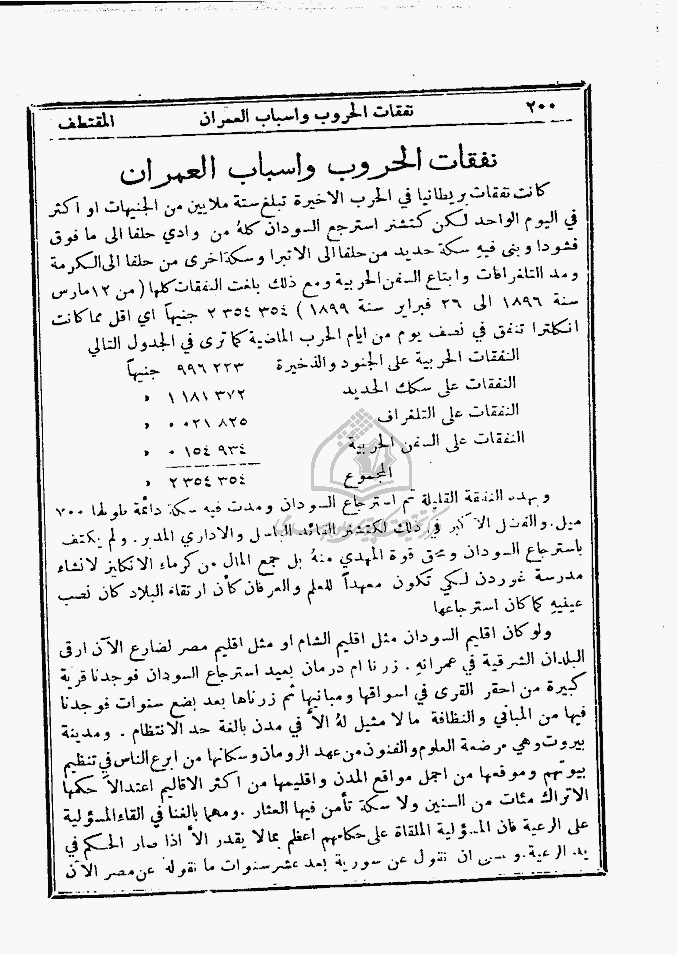 ٢٠٠ نفقات الحروب واسباب العمران المقتطف
نفقات الحروب واسباب العمران
كانت نفقات بريطانيا في الحرب الاخيرة تبلغ ستة ملايين من الجنيهات او اكثر
في اليوم الواحد لكن كتشنر استرجع السودان كلهُ من وادي حلفا الى ما فوق
فشودا وبنى فيهِ سكة حديد من حلفا الى الاتبرا وسكة اخرى من حلفا الى الكرمة
ومد التلغرافات وابتاع السفن الحربية ومع ذلك بلغت النفقات كلها (من ١٢ مارس
سنة ١٨٩٦ الى ٢٦ فبراير سنة ١٨٩٩) ٣٥٤ ٣٥٤ ٢ جنيهاً اي اقل مما كانت
انكلترا تنفق في نصف يوم من ايام الحرب الماضية كما ترى في الجدول التالي
النفقات الحربية على الجنود والذخيرة ٢٢٣ ٩٩٦ جنيهاً
النفقات على سكك الحديد ٣٧٢ ١٨١ ١ "
النفقات على التلغراف ٨٢٥ ٠٢١ ٠ "
النفقات على السفن الحربية ٩٣٤ ١٥٤ ٠ "
المجموع ٣٥٤ ٣٥٤ ٢ "
وبهذه النفقة القليلة تم استرجاع السودان ومدت فيه سكة دائمة طولها ٧٠٠
ميل. والفضل الاكبر في ذلك لكتشنر القائد الباسل والاداري المدبر. ولم يكتف
باسترجاع السودان ومحق قوة المهدي منهُ بل جمع المال من كرماء الانكليز لانشاء
مدرسة غوردن لكي تكون معهداً للعلم والعرفان كأن ارتقاء البلاد كان نصب
عينيهِ كما كان استرجاعها
ولو كان اقليم السودان مثل اقليم الشام او مثل اقليم مصر لضارع الآن ارقى
البلدان الشرقية في عمرانهِ. زرنا ام درمان بعيد استرجاع السودان فوجدنا قرية
كبيرة من احقر القرى في اسواقها ومبانيها ثم زرناها بعد بضع سنوات فوجدنا
فيها من المباني والنظافة ما لا مثيل لهُ الاَّ في مدن بالغة حد الانتظام. ومدينة
بيروت وهي مرضعة العلوم والفنون من عهد الرومان وسكانها من ابرع الناس في تنظيم
بيوتهم وموقعها من اجمل مواقع المدن واقليمها من اكثر الاقاليم اعتدالاً حكمها
الاتراك مئات من السنين ولا سكة تأمن فيها العثار. ومهما بالغنا في القاء المسؤولية
على الرعية فان المسؤولية الملقاة على حكامهم اعظم بما لا يقدر الاَّ اذا صار الحكم في
يد الرعية. ان نقول عن سورية بعد عشر سنوات ما نقوله عن مصر الآن